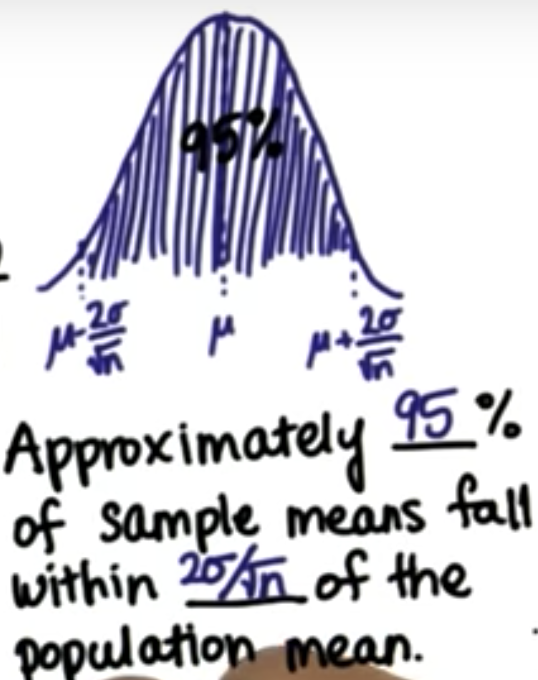 95%
μ-2σ/√n μ μ+2σ/√n
Approximately 95 %
of sample means fall
within 2σ/√n of the
population mean.